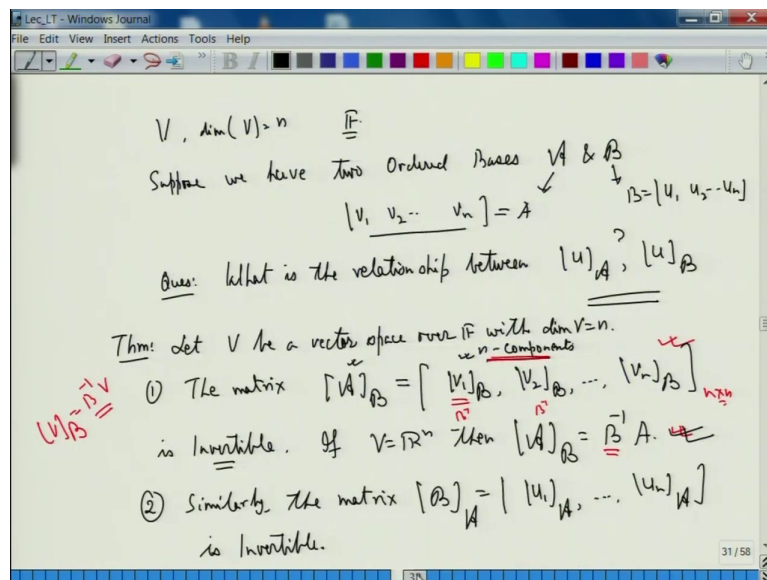 Lec_LT - Windows Journal
File Edit View Insert Actions Tools Help
V, dim(V)=n 𝔽
Suppose we have two Ordered Bases 𝒜 & ℬ
[v₁ v₂.. vₙ] = A B=[u₁ u₂--uₙ]
Ques: What is the relationship between [u]_𝒜, [u]_ℬ ?
Thm: Let V be a vector space over 𝔽 with dim V=n.
n-components
① The matrix [𝒜]_ℬ = [ [v₁]_ℬ, [v₂]_ℬ, ..., [vₙ]_ℬ ] n×n
B⁻¹ B⁻¹
[v]_ℬ = B⁻¹ v
is Invertible. If V=ℝⁿ then [𝒜]_ℬ = B⁻¹ A.
② Similarly, the matrix [ℬ]_𝒜 = [ [u₁]_𝒜, ..., [uₙ]_𝒜 ]
is Invertible.
31 / 58